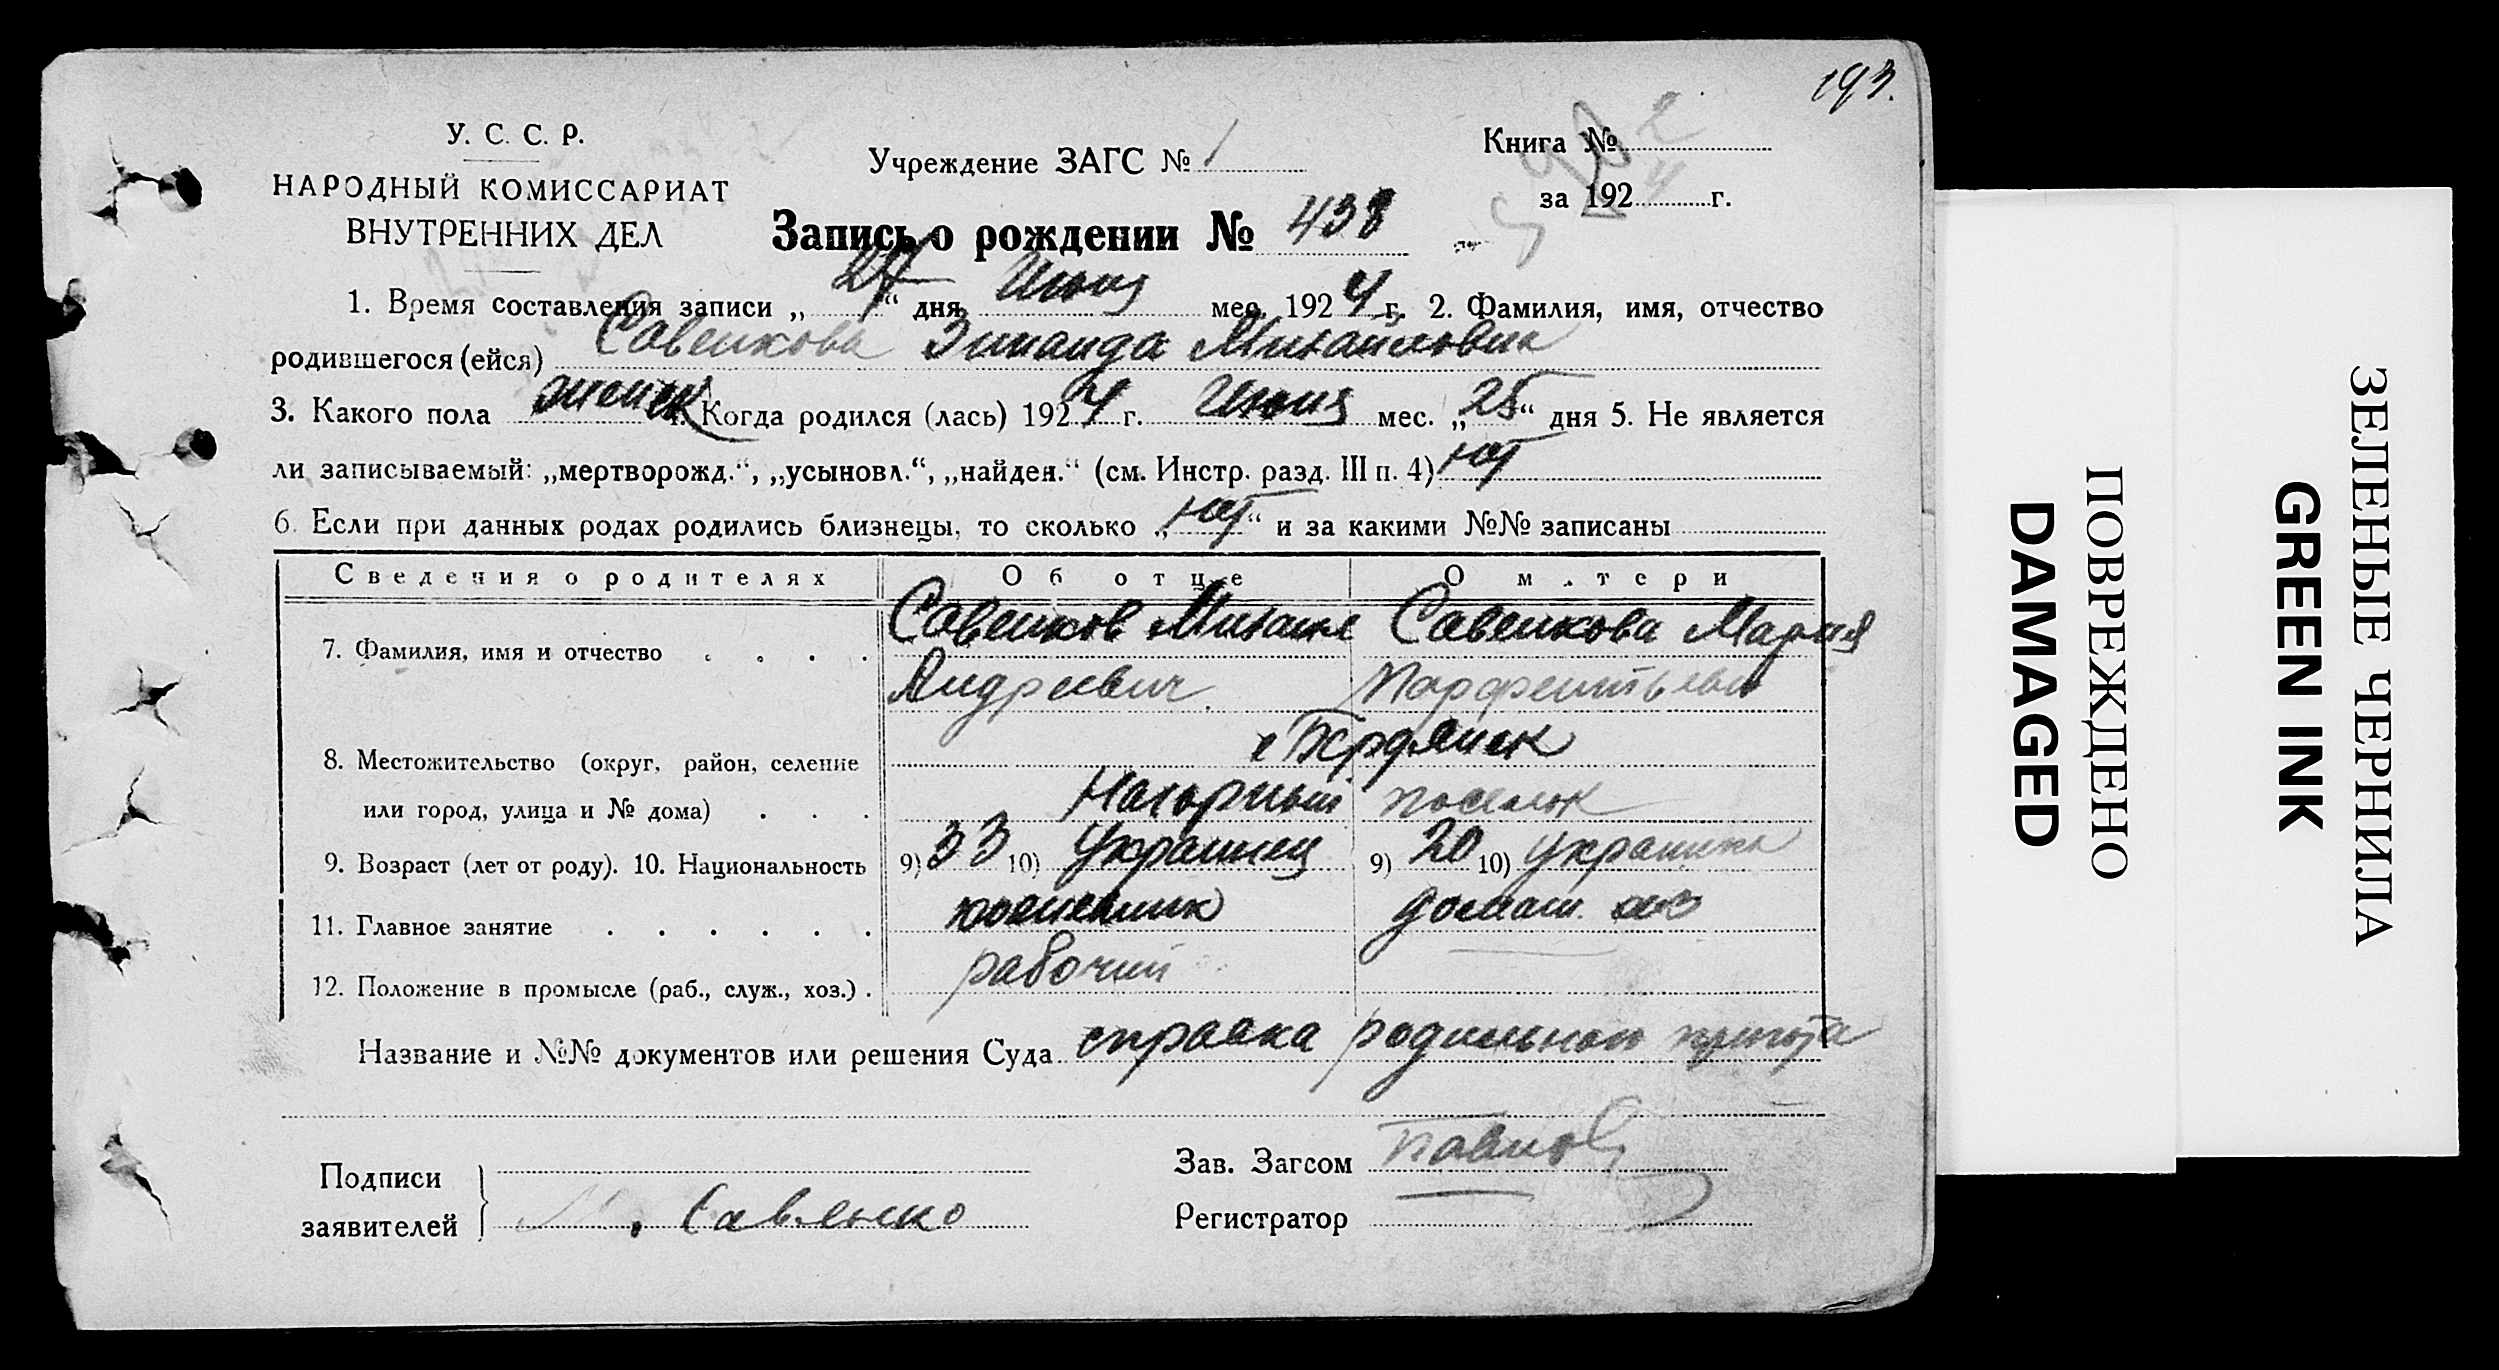 193.
У. С. С. Р.
НАРОДНЫЙ КОМИССАРИАТ
ВНУТРЕННИХ ДЕЛ
Учреждение ЗАГС № 1
Книга №
за 192 г.
Запись о рождении № 438
1. Время составления записи „27“ дня Июня мес. 1924 г. 2. Фамилия, имя, отчество
родившегося (ейся) Савенкова Зинаида Михайловна
3. Какого пола женск 4. Когда родился (лась) 1924 г. Июня мес. „25“ дня 5. Не является
ли записываемый: „мертворожд.“, „усыновл.“, „найден.“ (см. Инстр. разд. III п. 4) нет
6. Если при данных родах родились близнецы, то сколько „нет“ и за какими №№ записаны
Сведения о родителях Об отце О матери
7. Фамилия, имя и отчество Савенков Михаил Савенкова Мария
Андреевич Парфентьевна
8. Местожительство (округ, район, селение г Бердянск
или город, улица и № дома) Нагорный поселок
9. Возраст (лет от роду). 10. Национальность 9) 33 10) Украинец 9) 20 10) Украинка
11. Главное занятие домаш. хоз
12. Положение в промысле (раб., служ., хоз.) рабочий
Название и №№ документов или решения Суда справка родильного приюта
Подписи
заявителей
Савленко
Зав. Загсом Павлов
Регистратор
ПОВРЕЖДЕНО
DAMAGED
ЗЕЛЕНЫЕ ЧЕРНИЛА
GREEN INK